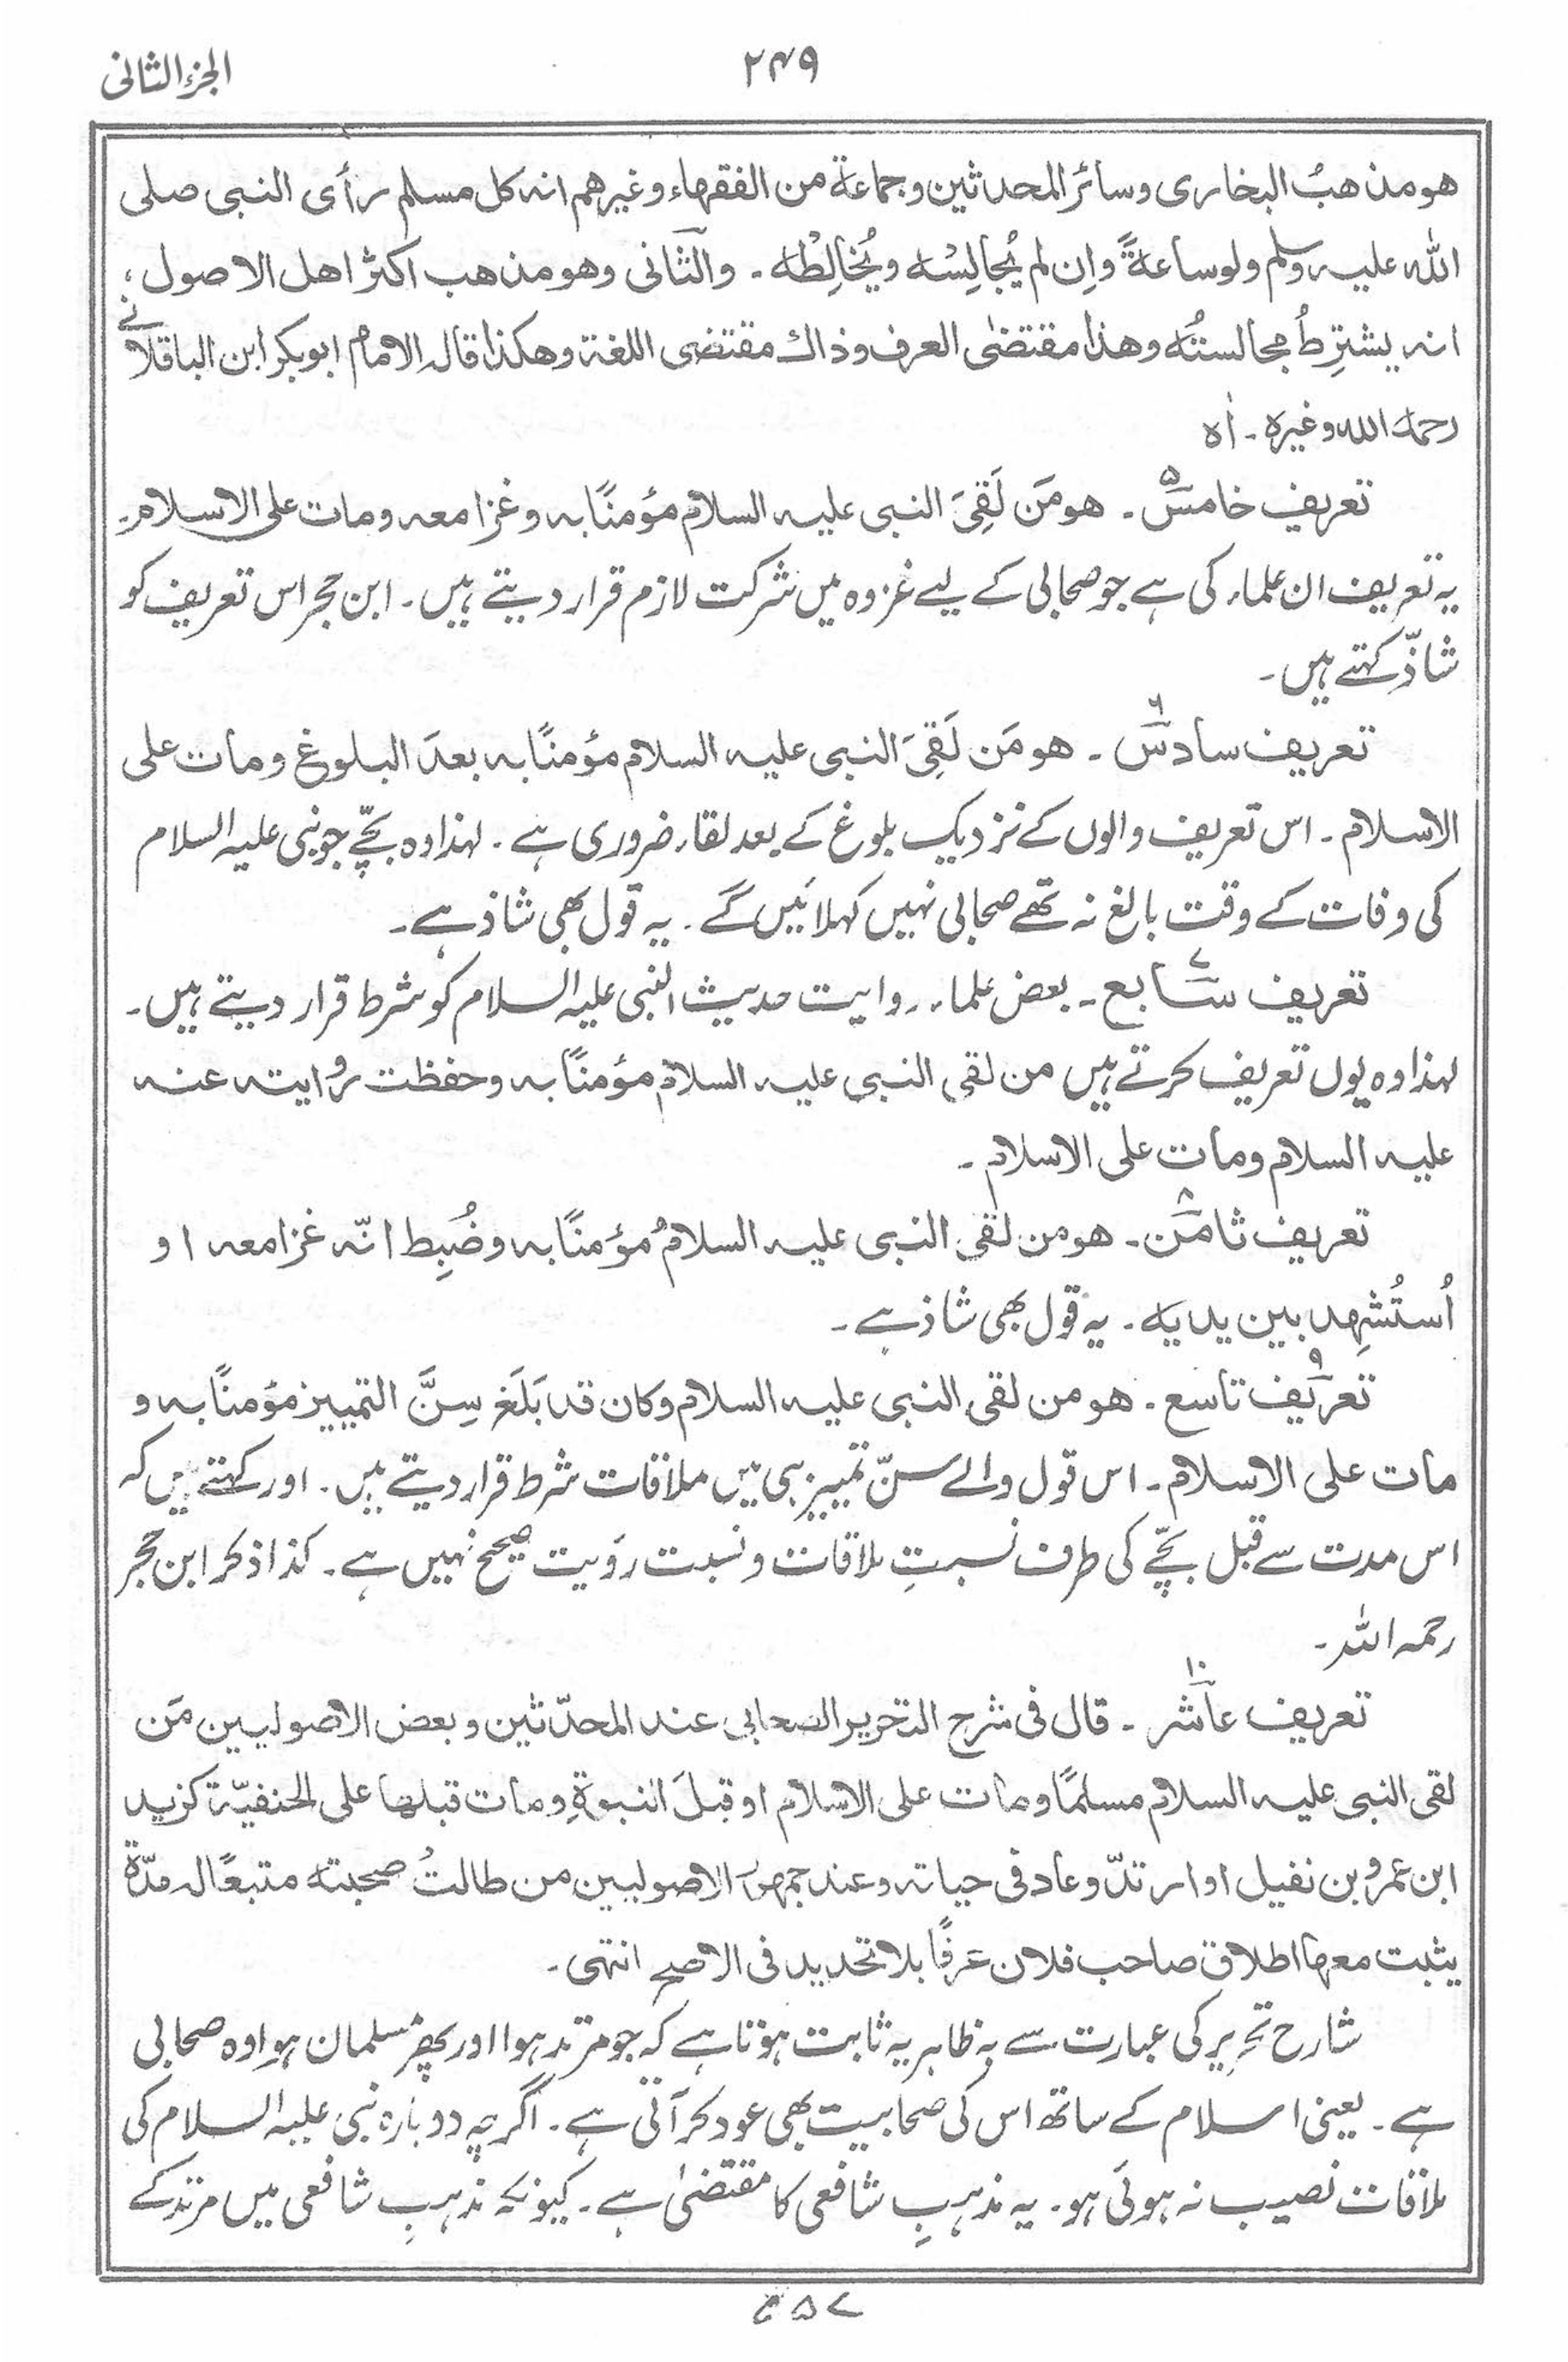 الجزء الثانی
۲۴۹
هو مذهبُ البخاری وسائر المحدثین وجماعة من الفقهاء وغیرهم انه کل مسلم رأی النبی صلی
الله علیہ وسلم ولو ساعةً وإن لم یُجالِسْه ویُخالِطْه ۔ والثانی وهو مذهب اکثر اهل الاصول ،
انه یشترِطُ مجالستُه وهذا مقتضٰی العرف وذاك مقتضی اللغة وهکذا قال الامام ابوبکر ابن الباقلانی
رحمه الله وغیره ۔ اٰه
تعریف خامسؔ ۵ ۔ هو مَن لَقِیَ النبی علیه السلام مؤمنًا به وغزا معه ومات علی الاسلام۔
یہ تعریف ان علماء کی ہے جو صحابی کے لیے غزوہ میں شرکت لازم قرار دیتے ہیں ۔ ابن حجر اس تعریف کو
شاذّ کہتے ہیں ۔
تعریف سادسؔ ۶ ۔ هو مَن لَقِیَ النبی علیه السلام مؤمنًا به بعدَ البلوغ ومات علی
الاسلام ۔ اس تعریف والوں کے نزدیک بلوغ کے بعد لقاء ضروری ہے ۔ لہذا وہ بچّے جو نبی علیہ السلام
کی وفات کے وقت بالغ نہ تھے صحابی نہیں کہلائیں گے ۔ یہ قول بھی شاذ ہے ۔
تعریف سؔابع ۷ ۔ بعض علماء روایت حدیث النبی علیہ السلام کو شرط قرار دیتے ہیں ۔
لہذا وہ یوں تعریف کرتے ہیں من لقی النبی علیه السلام مؤمنًا به وحفظت روایته عنه
علیه السلام ومات علی الاسلام ۔
تعریف ثامنؔ ۸ ۔ هو من لقی النبی علیه السلامُ مؤمنًا به وضُبِط انّه غزا معه او
اُستُشهِد بین یدیه ۔ یہ قول بھی شاذ ہے ۔
تعریف تاسع ۹ ۔ هو من لقی النبی علیه السلام وکان قد بَلَغ سِنَّ التمییز مؤمنًا به و
مات علی الاسلام ۔ اس قول والے سنّ تمییز ہی میں ملاقات شرط قرار دیتے ہیں ۔ اور کہتے ہیں کہ
اس مدت سے قبل بچّے کی طرف نسبتِ ملاقات و نسبت رؤیت صحیح نہیں ہے ۔ کذا ذکر ابن حجر
رحمہ اللہ ۔
تعریف عاشر ۱۰ ۔ قال فی شرح التحریر الصحابی عند المحدّثین وبعض الاصولیین مَن
لقی النبی علیه السلام مسلمًا ومات علی الاسلام او قبلَ النبوةِ ومات قبلها علی الحنفیّة کزید
ابن عمرو بن نفیل او ارتدّ وعاد فی حیاته وعند جمهور الاصولیین من طالتُ صحبته متبعًا له مدّة
یثبت معها اطلاق صاحب فلان عرفًا بلا تحدید فی الاصح انتهی ۔
شارح تحریر کی عبارت سے بہ ظاہر یہ ثابت ہوتا ہے کہ جو مرتد ہوا اور پھر مسلمان ہوا وہ صحابی
ہے ۔ یعنی اسلام کے ساتھ اس کی صحابیت بھی عود کر آتی ہے ۔ اگرچہ دوبارہ نبی علیہ السلام کی
ملاقات نصیب نہ ہوئی ہو ۔ یہ مذہبِ شافعی کا مقتضیٰ ہے ۔ کیونکہ مذہبِ شافعی میں مرتد کے